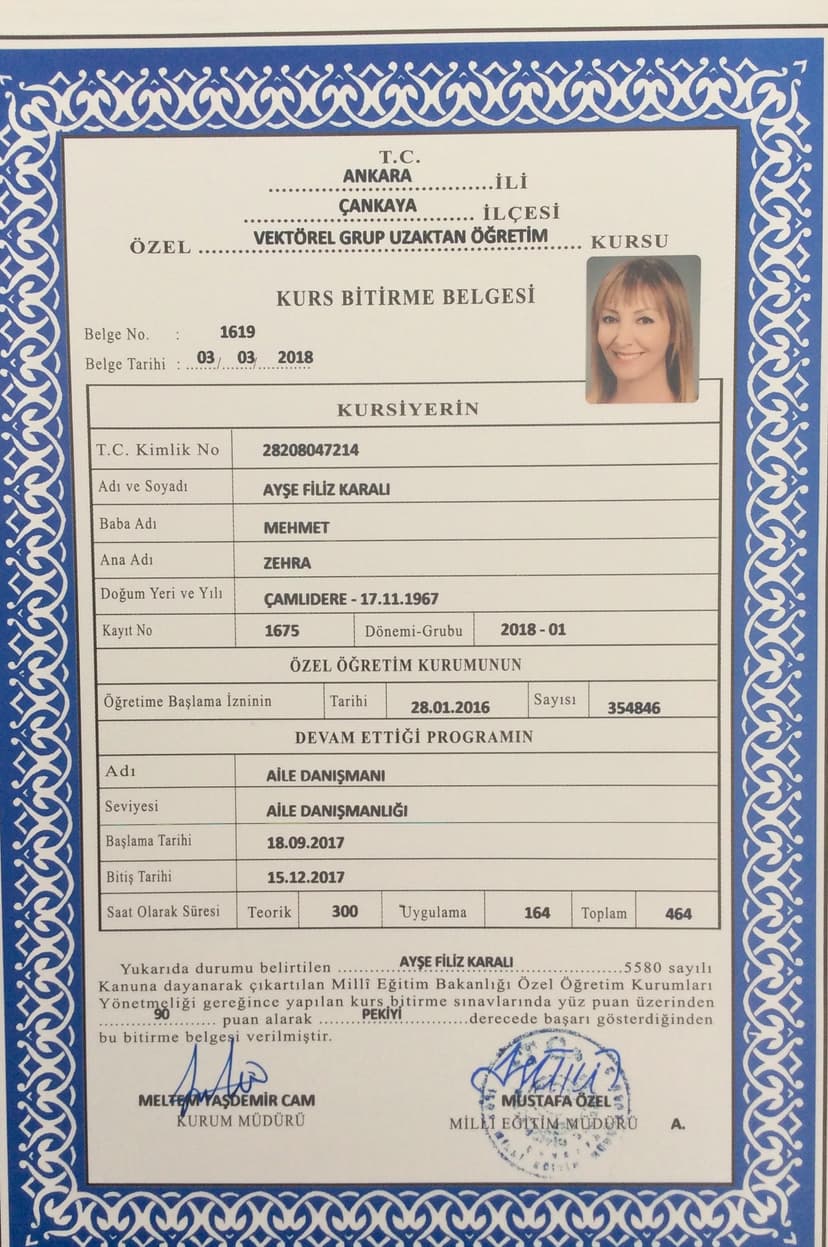 T.C.
ANKARA İLİ
ÇANKAYA İLÇESİ
ÖZEL VEKTÖREL GRUP UZAKTAN ÖĞRETİM KURSU
KURS BİTİRME BELGESİ
Belge No. : 1619
Belge Tarihi : 03/ 03/ 2018
KURSİYERİN
T.C. Kimlik No 28208047214
Adı ve Soyadı AYŞE FİLİZ KARALI
Baba Adı MEHMET
Ana Adı ZEHRA
Doğum Yeri ve Yılı ÇAMLIDERE - 17.11.1967
Kayıt No 1675 Dönemi-Grubu 2018 - 01
ÖZEL ÖĞRETİM KURUMUNUN
Öğretime Başlama İzninin Tarihi 28.01.2016 Sayısı 354846
DEVAM ETTİĞİ PROGRAMIN
Adı AİLE DANIŞMANI
Seviyesi AİLE DANIŞMANLIĞI
Başlama Tarihi 18.09.2017
Bitiş Tarihi 15.12.2017
Saat Olarak Süresi Teorik 300 Uygulama 164 Toplam 464
Yukarıda durumu belirtilen AYŞE FİLİZ KARALI 5580 sayılı
Kanuna dayanarak çıkartılan Millî Eğitim Bakanlığı Özel Öğretim Kurumları
Yönetmeliği gereğince yapılan kurs bitirme sınavlarında yüz puan üzerinden
90 puan alarak PEKİYİ derecede başarı gösterdiğinden
bu bitirme belgesi verilmiştir.
MELTEM YAŞDEMİR CAM
KURUM MÜDÜRÜ
MUSTAFA ÖZEL
MİLLÎ EĞİTİM MÜDÜRÜ A.